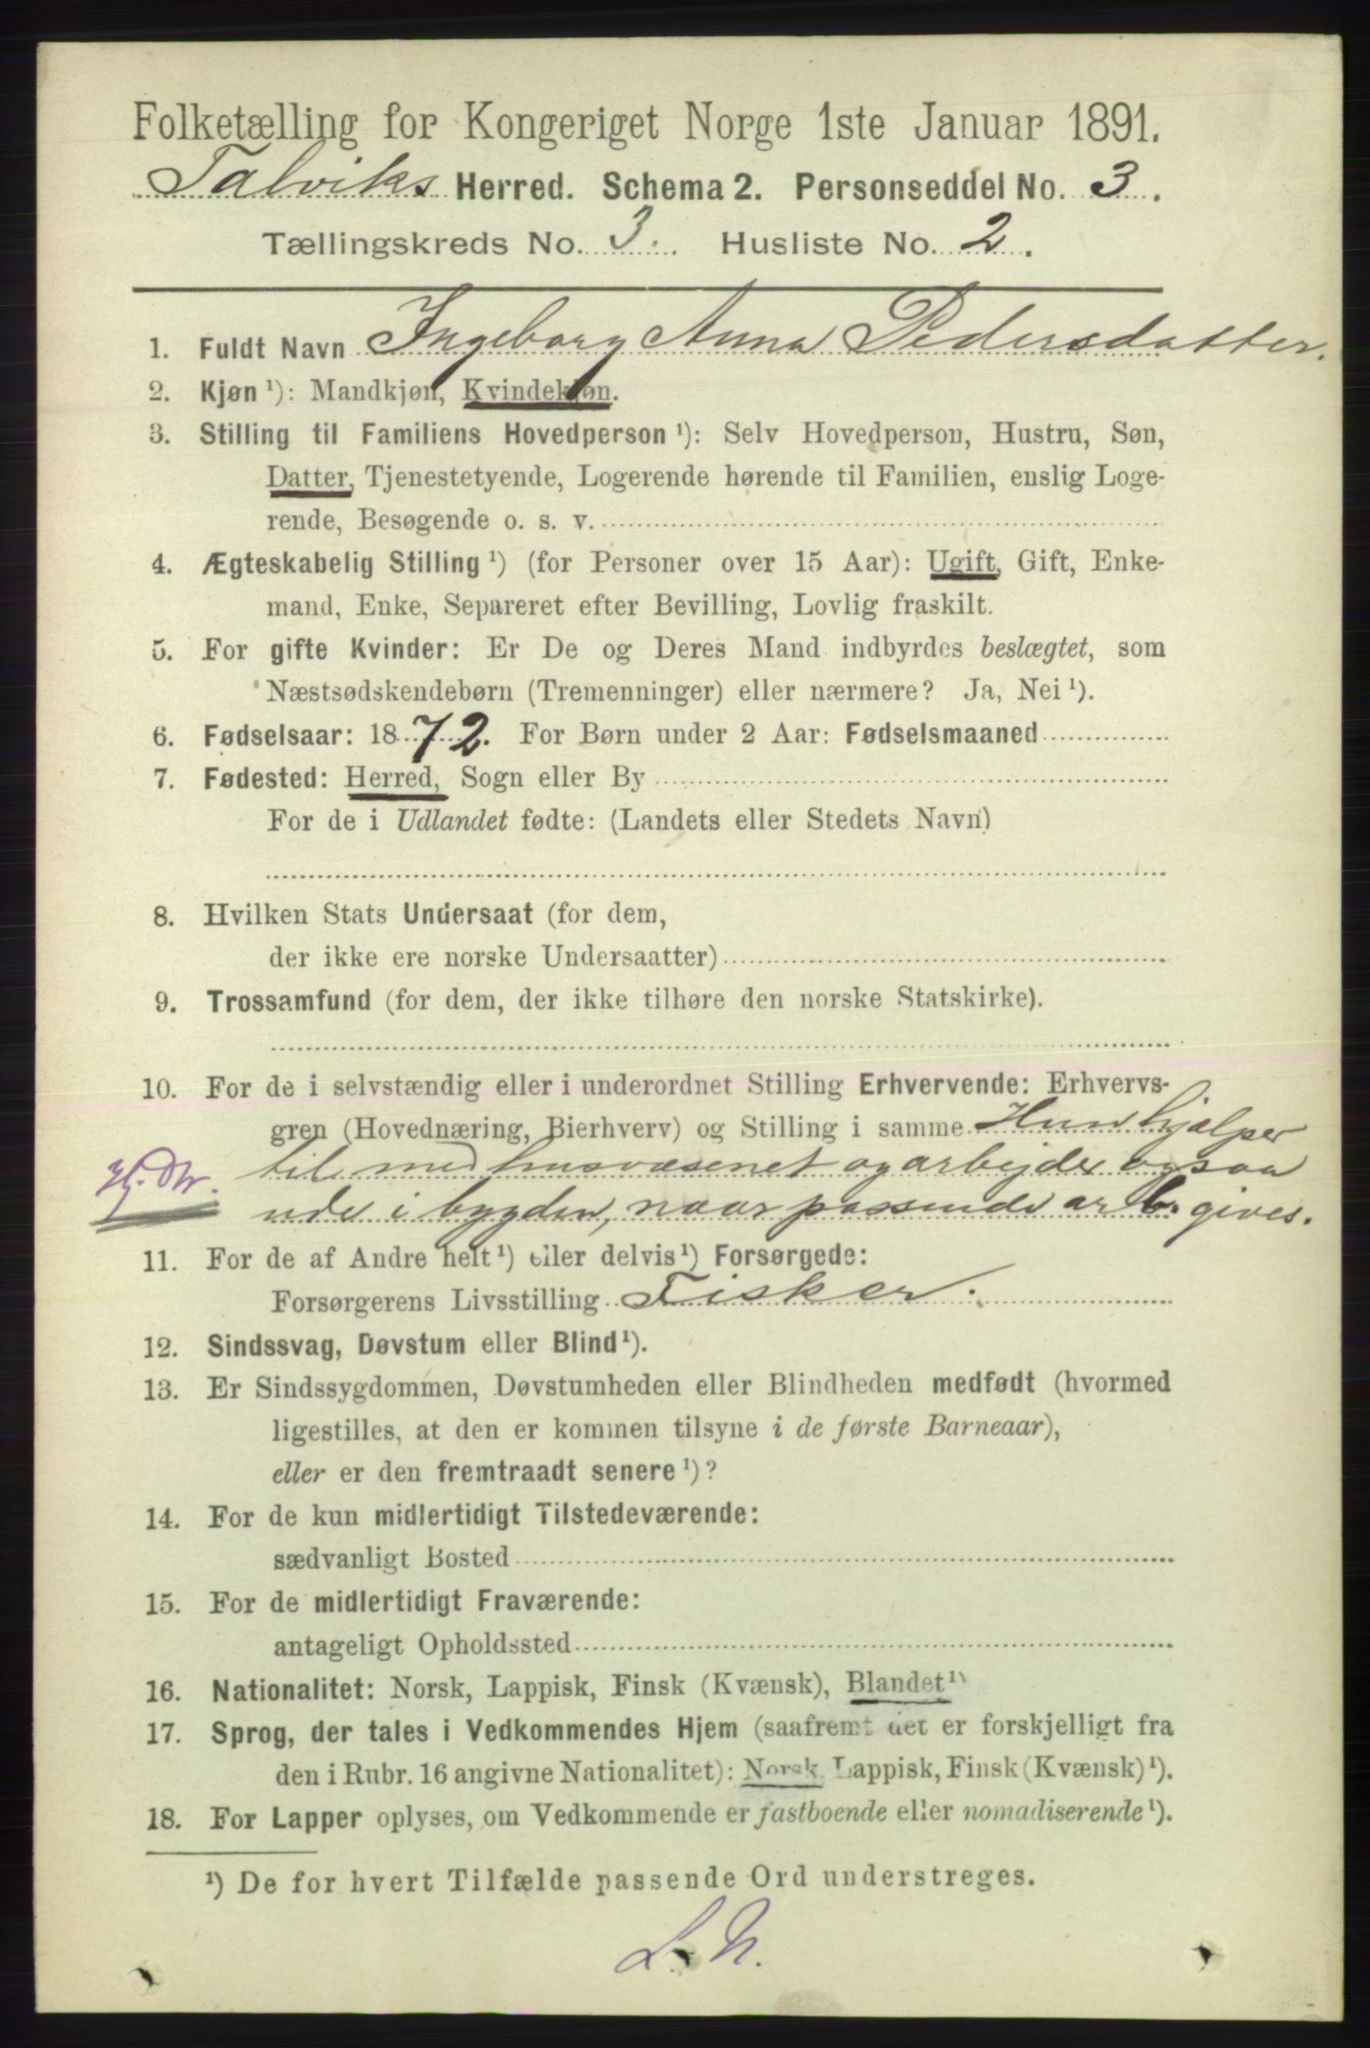 Folketælling for Kongeriget Norge 1ste Januar 1891.
Talviks Herred. Schema 2. Personseddel No. 3.
Tællingskreds No. 3. Husliste No. 2.
1. Fuldt Navn Ingeborg Anna Pedersdatter.
2. Kjøn ¹): Mandkjøn, Kvindekjøn.
3. Stilling til Familiens Hovedperson ¹): Selv Hovedperson, Hustru, Søn,
Datter, Tjenestetyende, Logerende hørende til Familien, enslig Loge-
rende, Besøgende o. s. v.
4. Ægteskabelig Stilling ¹) (for Personer over 15 Aar): Ugift, Gift, Enke-
mand, Enke, Separeret efter Bevilling, Lovlig fraskilt.
5. For gifte Kvinder: Er De og Deres Mand indbyrdes beslægtet, som
Næstsødskendebørn (Tremenninger) eller nærmere? Ja, Nei ¹).
6. Fødselsaar: 1872. For Børn under 2 Aar: Fødselsmaaned
7. Fødested: Herred, Sogn eller By
For de i Udlandet fødte: (Landets eller Stedets Navn)
8. Hvilken Stats Undersaat (for dem,
der ikke ere norske Undersaatter)
9. Trossamfund (for dem, der ikke tilhøre den norske Statskirke).
10. For de i selvstændig eller i underordnet Stilling Erhvervende: Erhvervs-
gren (Hovednæring, Bierhverv) og Stilling i samme Hun hjælper
til med husvæsenet og arbejder ogsaa
Hj. Dtr.
ude i bygden, naar passende arb. gives.
11. For de af Andre helt ¹) eller delvis ¹) Forsørgede:
Forsørgerens Livsstilling Fisker.
12. Sindssvag, Døvstum eller Blind ¹).
13. Er Sindssygdommen, Døvstumheden eller Blindheden medfødt (hvormed
ligestilles, at den er kommen tilsyne i de første Barneaar),
eller er den fremtraadt senere ¹)?
14. For de kun midlertidigt Tilstedeværende:
sædvanligt Bosted
15. For de midlertidigt Fraværende:
antageligt Opholdssted
16. Nationalitet: Norsk, Lappisk, Finsk (Kvænsk), Blandet ¹)
17. Sprog, der tales i Vedkommendes Hjem (saafremt det er forskjelligt fra
den i Rubr. 16 angivne Nationalitet): Norsk, Lappisk, Finsk (Kvænsk) ¹).
18. For Lapper oplyses, om Vedkommende er fastboende eller nomadiserende ¹).
¹) De for hvert Tilfælde passende Ord understreges.
L. N.